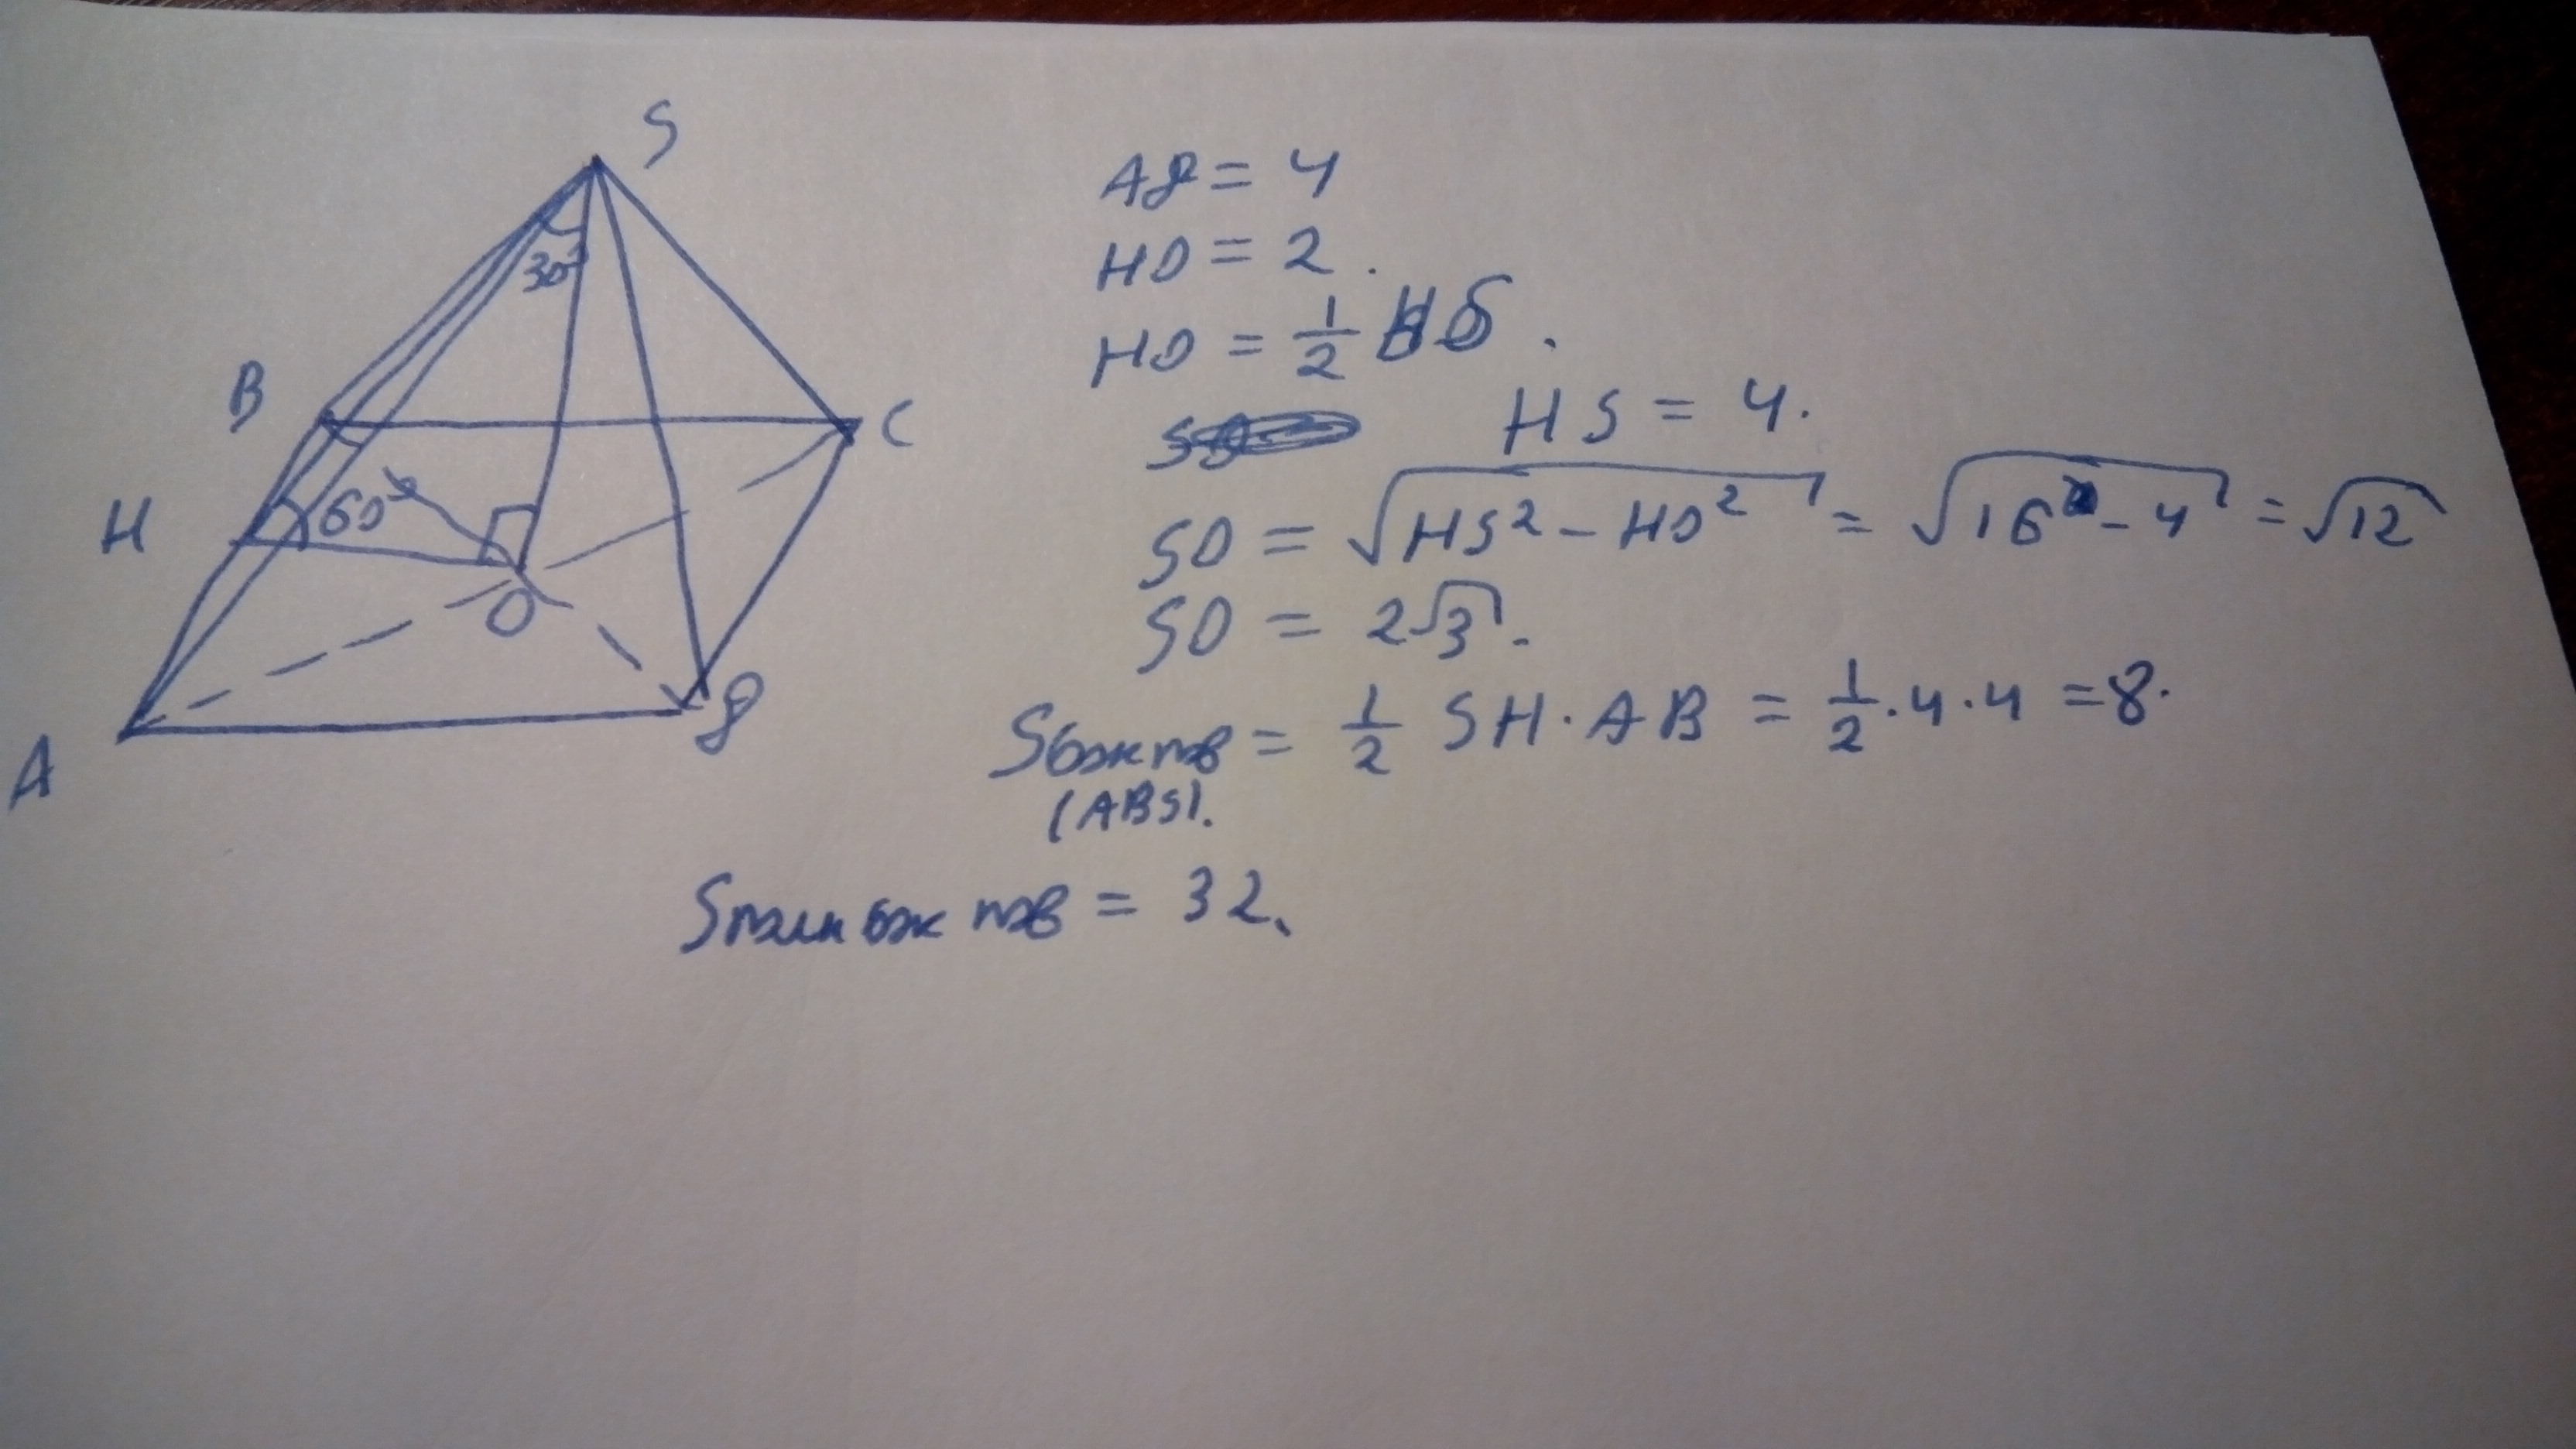 S
30°
B
C
H
60°
O
A
д
Aд = 4
HO = 2.
HO = 1/2 HS.
HS = 4.
SO = √(HS² - HO²) = √(16 - 4) = √12
SO = 2√3.
Sбок пов = 1/2 SH · AB = 1/2 · 4 · 4 = 8.
(ABS).
Sполн бок пов = 32.